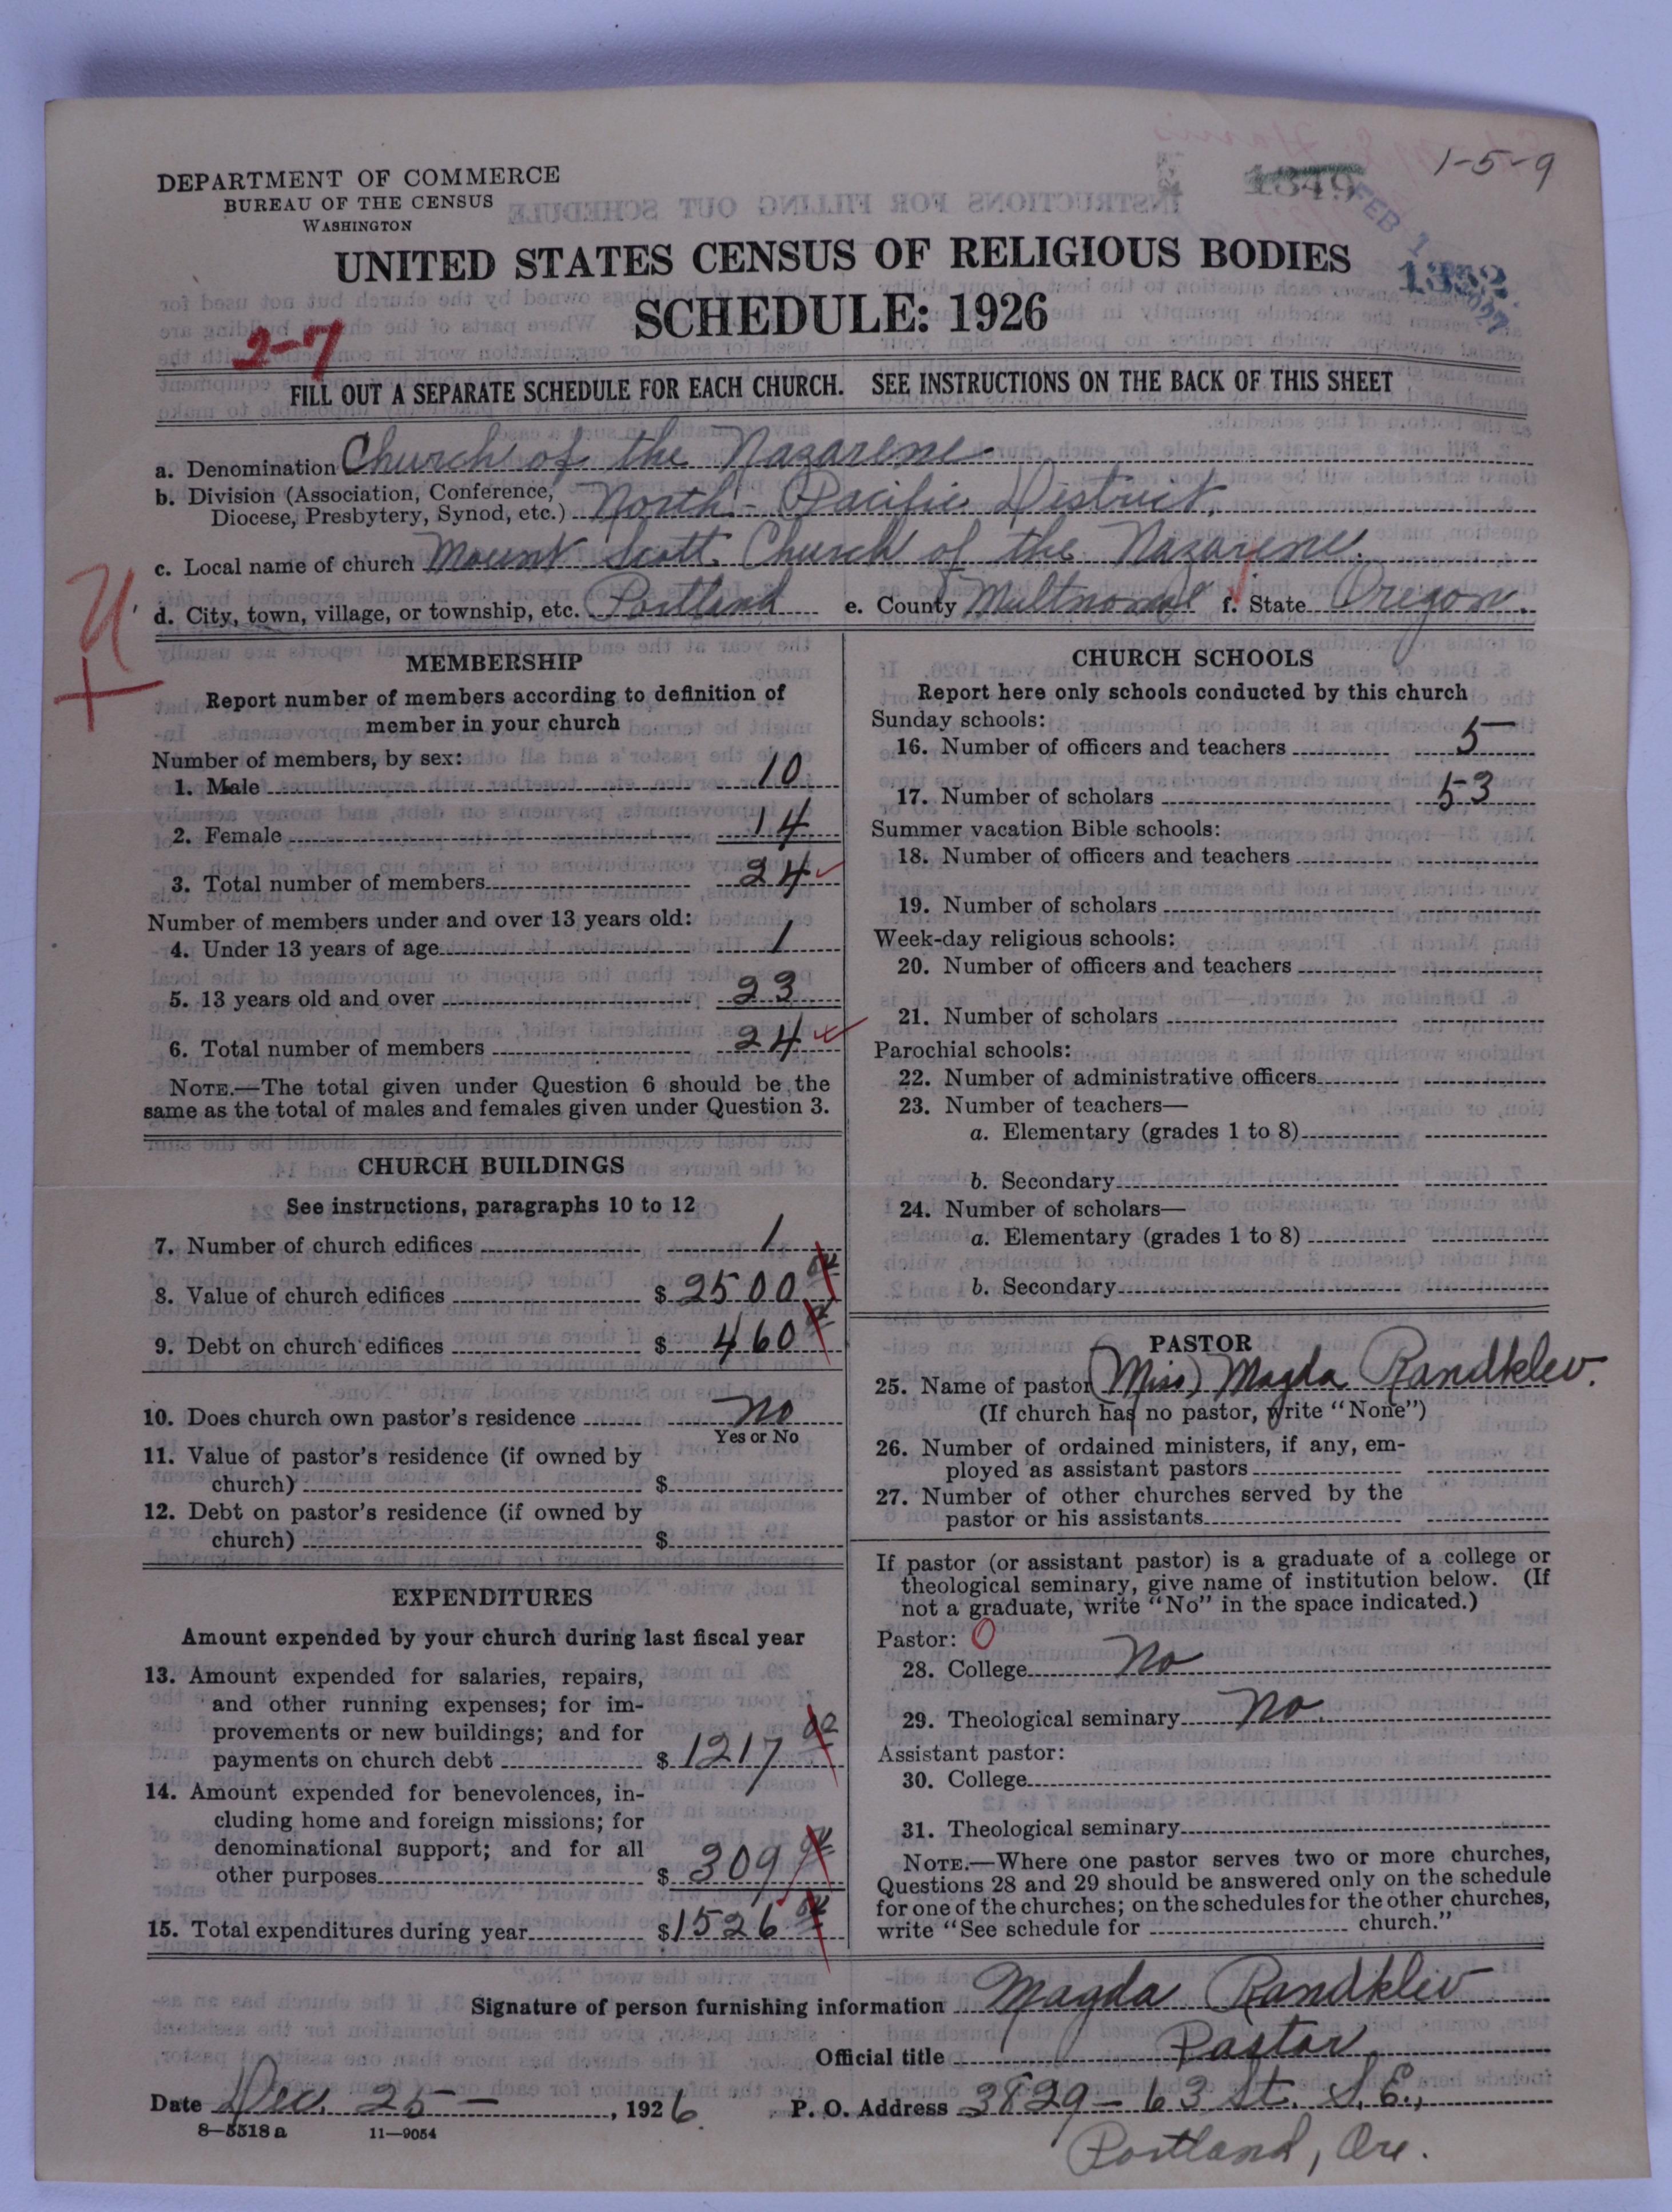 1-5-9
1349
FEB 1 1927
1352
DEPARTMENT OF COMMERCE
BUREAU OF THE CENSUS
WASHINGTON
UNITED STATES CENSUS OF RELIGIOUS BODIES
SCHEDULE: 1926
2-7
FILL OUT A SEPARATE SCHEDULE FOR EACH CHURCH. SEE INSTRUCTIONS ON THE BACK OF THIS SHEET
a. Denomination Church of the Nazarene
b. Division (Association, Conference,
Diocese, Presbytery, Synod, etc.) North-Pacific District.
c. Local name of church Mount Scott Church of the Nazarene.
d. City, town, village, or township, etc. Portland e. County Multnomah f. State Oregon.
MEMBERSHIP
Report number of members according to definition of
member in your church
Number of members, by sex:
1. Male 10
2. Female 14
3. Total number of members 24
Number of members under and over 13 years old:
4. Under 13 years of age 1
5. 13 years old and over 23
6. Total number of members 24
NOTE.—The total given under Question 6 should be the
same as the total of males and females given under Question 3.
CHURCH BUILDINGS
See instructions, paragraphs 10 to 12
7. Number of church edifices 1
8. Value of church edifices $ 2500
9. Debt on church edifices $ 460
10. Does church own pastor's residence No
Yes or No
11. Value of pastor's residence (if owned by
church) $
12. Debt on pastor's residence (if owned by
church) $
EXPENDITURES
Amount expended by your church during last fiscal year
13. Amount expended for salaries, repairs,
and other running expenses; for im-
provements or new buildings; and for
payments on church debt $ 1217
14. Amount expended for benevolences, in-
cluding home and foreign missions; for
denominational support; and for all
other purposes $ 309
15. Total expenditures during year $ 1526
CHURCH SCHOOLS
Report here only schools conducted by this church
Sunday schools:
16. Number of officers and teachers 5
17. Number of scholars 53
Summer vacation Bible schools:
18. Number of officers and teachers
19. Number of scholars
Week-day religious schools:
20. Number of officers and teachers
21. Number of scholars
Parochial schools:
22. Number of administrative officers
23. Number of teachers—
a. Elementary (grades 1 to 8)
b. Secondary
24. Number of scholars—
a. Elementary (grades 1 to 8)
b. Secondary
PASTOR
25. Name of pastor (Miss) Magda Randklev.
(If church has no pastor, write "None")
26. Number of ordained ministers, if any, em-
ployed as assistant pastors
27. Number of other churches served by the
pastor or his assistants
If pastor (or assistant pastor) is a graduate of a college or
theological seminary, give name of institution below. (If
not a graduate, write "No" in the space indicated.)
Pastor: O
28. College No
29. Theological seminary No.
Assistant pastor:
30. College
31. Theological seminary
NOTE.—Where one pastor serves two or more churches,
Questions 28 and 29 should be answered only on the schedule
for one of the churches; on the schedules for the other churches,
write "See schedule for church."
Signature of person furnishing information Magda Randklev
Official title Pastor
Date Dec. 25 — , 1926 P. O. Address 3829 - 63 St. S. E.,
8—5518a 11—9054
Portland, Ore.